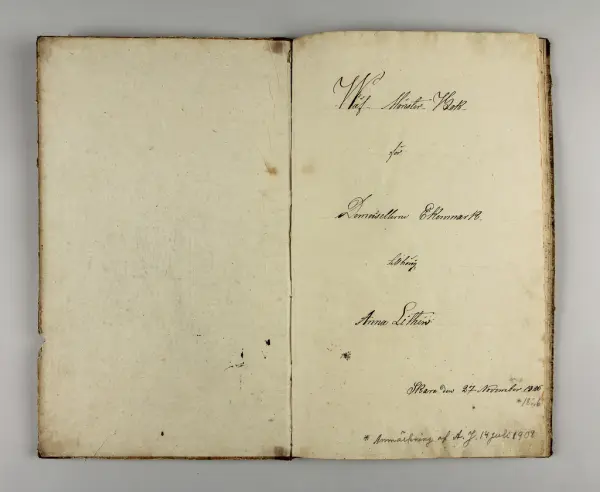 Wäf- Mönster-Bok.
för
Demoisellerne Ekenmark.
tillhörig
Anna Lithin
Skara den 27 November 18
* Anmärkning af A. J. 14 juli 1908